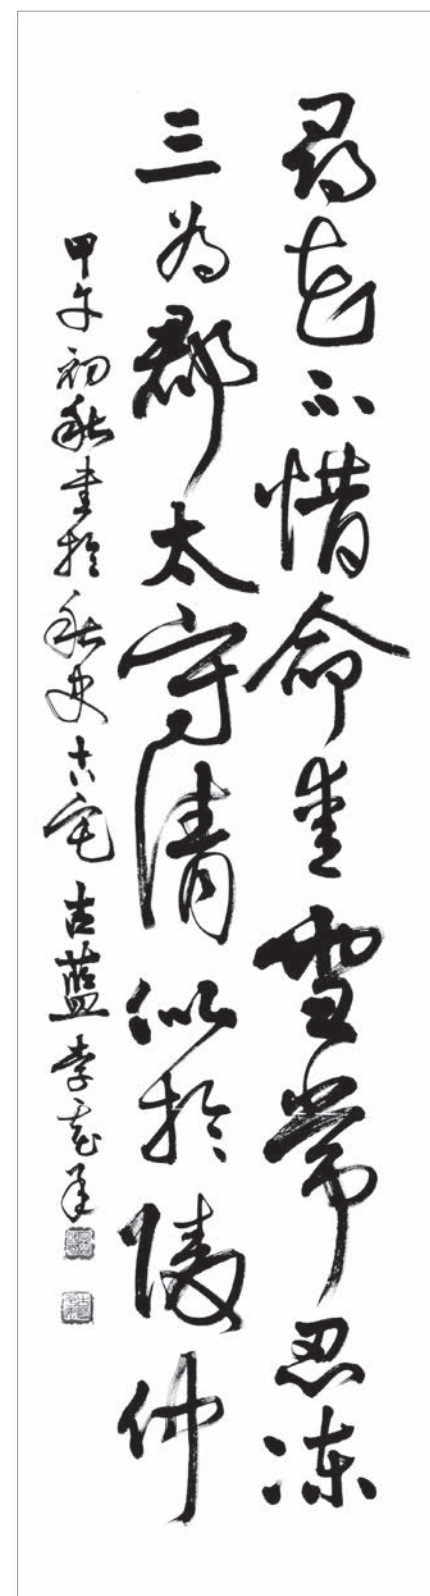 尋花不惜命愛雪常忍凍
三為郡太守清似於陵仲
甲午初秋書於秋史古宅 古藍 李